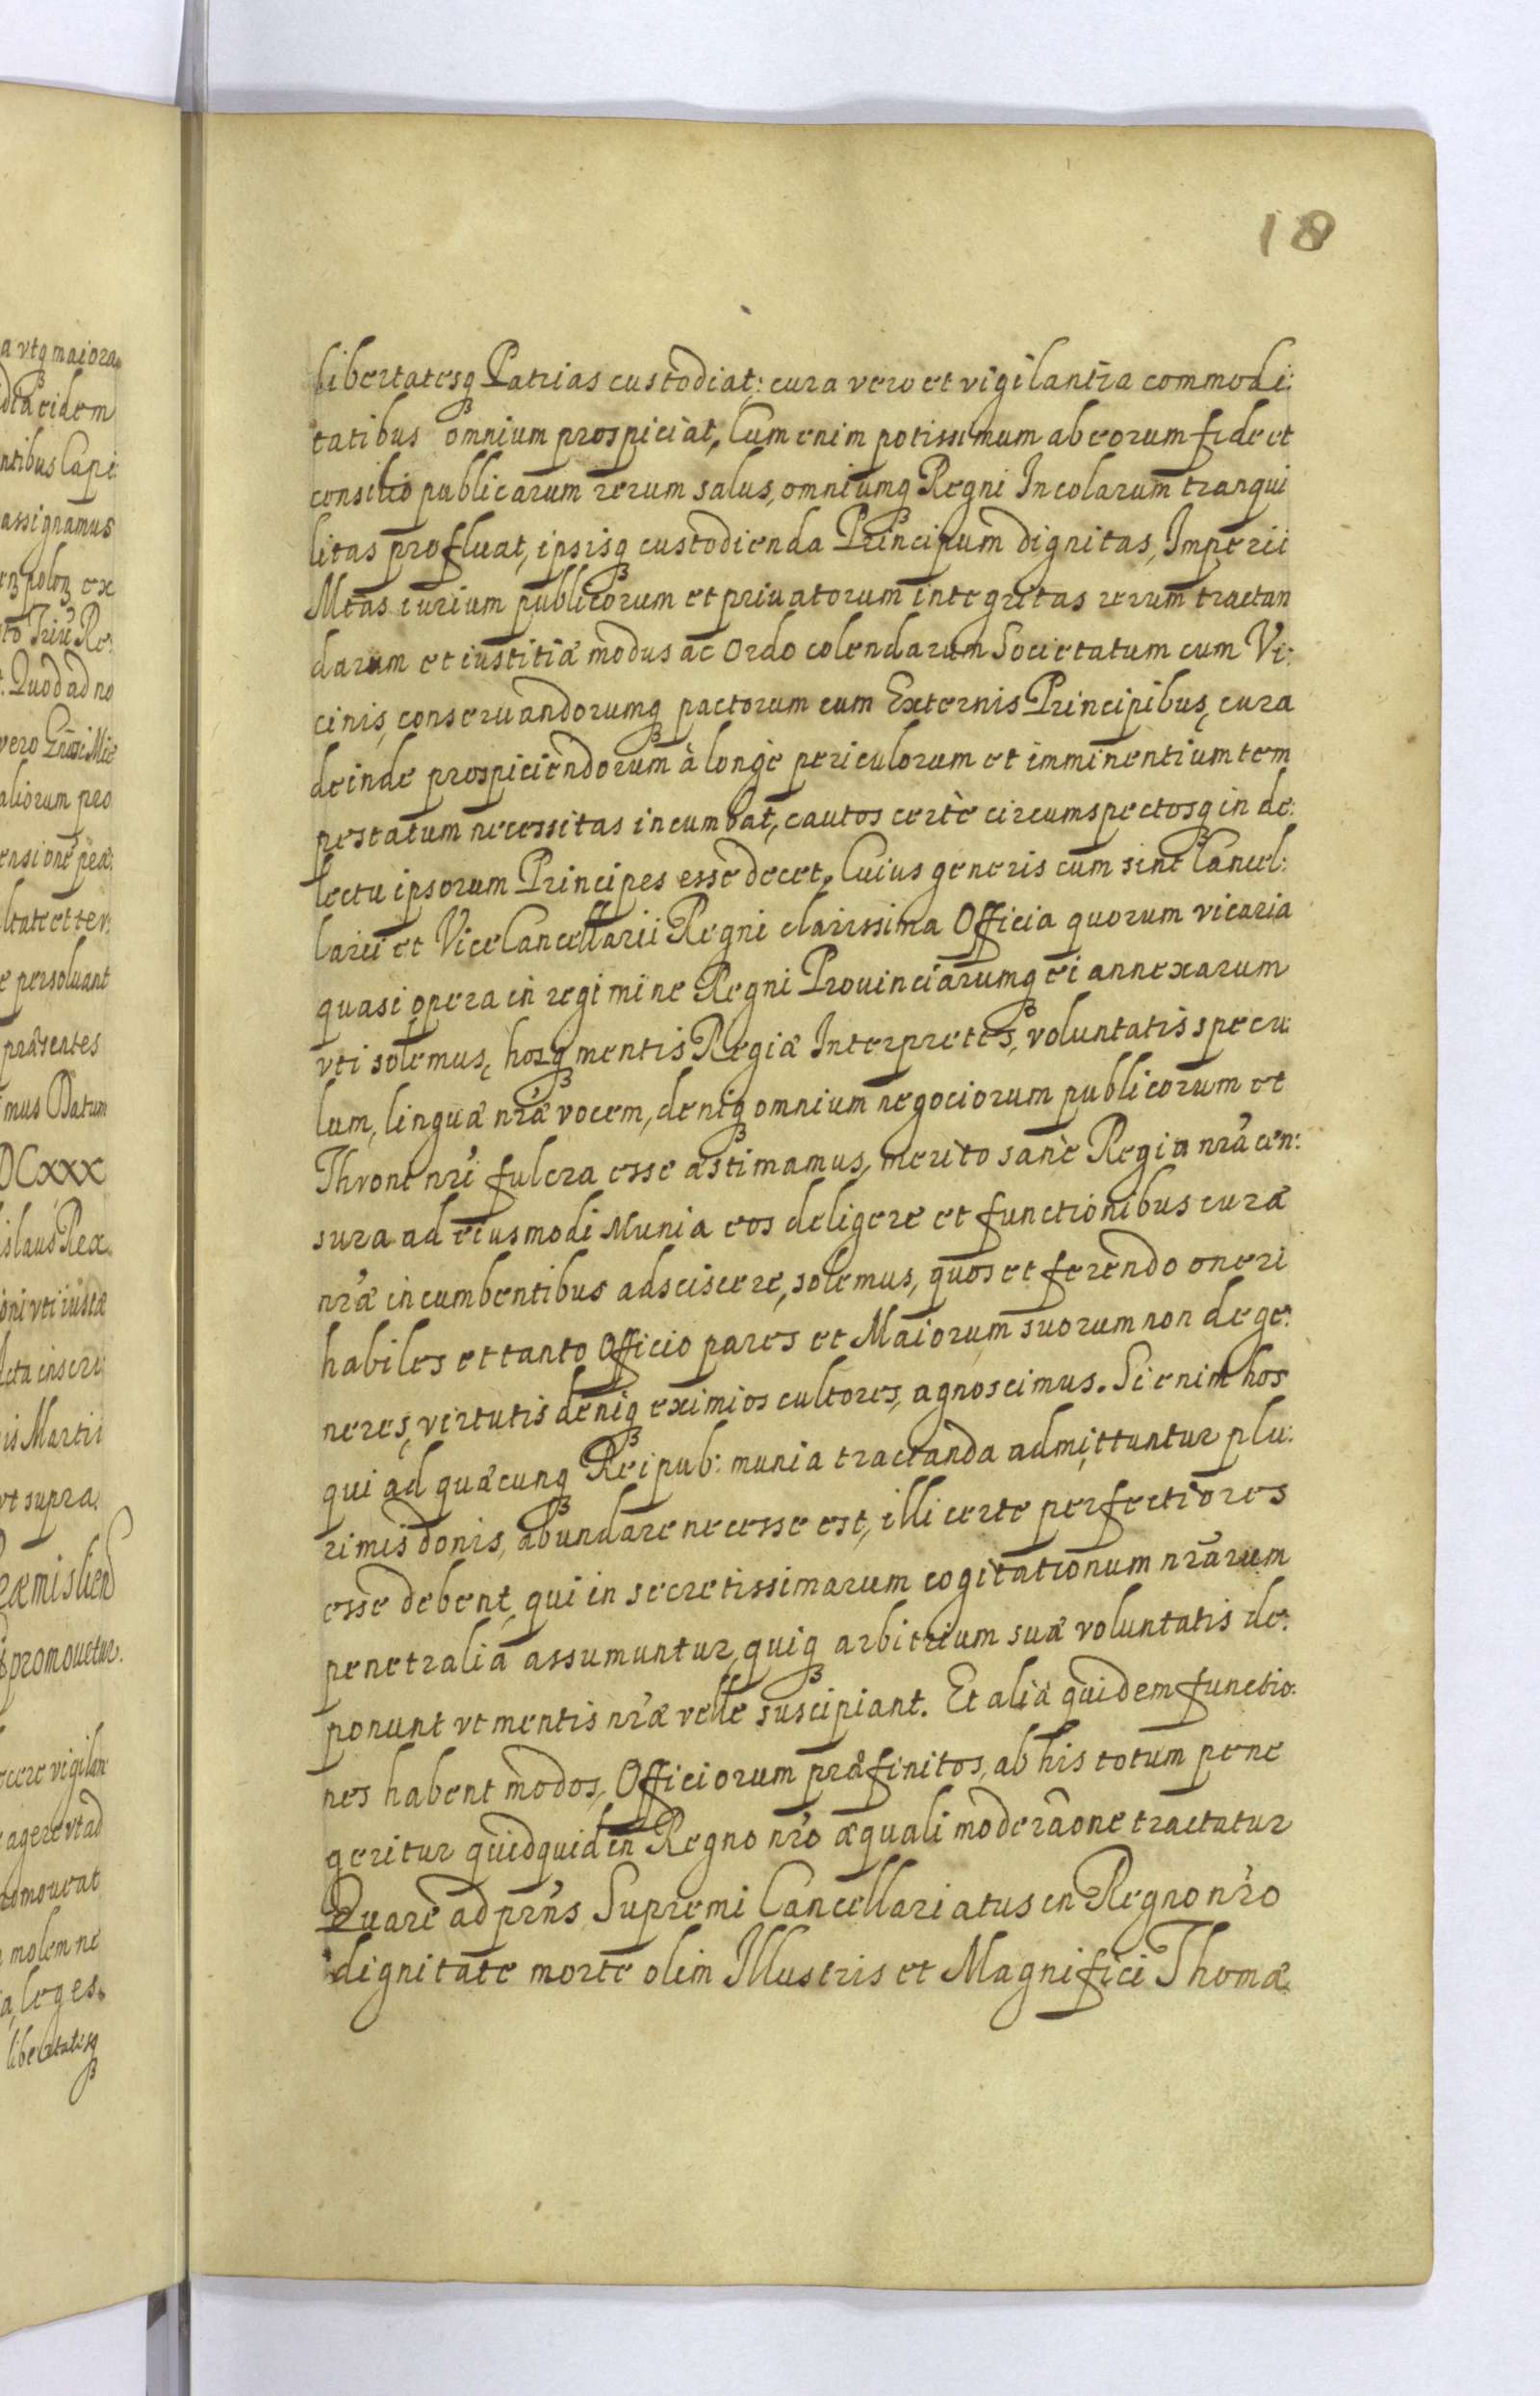 18
libertatesq₃ Patrias custodiat: cura vero et vigilantia commodi:
tatibus omnium prospiciat, Cum enim potissimum ab eorum fide et
consilio publicarum rerum salus, omniumq₃ Regni Incolarum tranqui
litas profluat, ipsisq₃ custodienda Principum dignitas, Imperii
Mtas iurium publicorum et priuatorum integritas rerum tractan
darum et iustitiæ modus ac Ordo colendarum Societatum cum Vi:
cinis, conseruandorumq₃ pactorum cum Externis Principibus, cura
deinde prospiciendorum à longè periculorum et imminentium tem
pestatum necessitas incumbat, cautos certè circumspectosq₃ in de:
lectu ipsorum Principes esse decet. Cuius generis cum sint Cancel:
larii et ViceCancellarii Regni clarissima Officia quorum vicaria
quasi opera in regimine Regni Prouinciarumq₃ ei annexarum
vti solemus, hosq₃ mentis Regiæ Interpretes, voluntatis specu
lum, linguæ nræ vocem, deniq₃ omnium negociorum publicorum et
Throni nri fulcra esse æstimamus, merito sanè Regia nra cen:
sura ad eiusmodi Munia eos deligere et functionibus curæ
nræ incumbentibus adsciscere, solemus, quos et ferendo oneri
habiles et tanto Officio pares et Maiorum suorum non dege:
neres, virtutis deniq₃ eximios cultores, agnoscimus. Si enim hos
qui ad quæcunq₃ Reipub: munia tractanda admittuntur plu:
rimis donis, abundare necesse est, illi certe perfectiores
esse debent, qui in secretissimarum cogitationum nrarum
penetralia assumuntur, quiq₃ arbitrium suæ voluntatis de:
ponunt vt mentis nræ velle suscipiant. Et aliæ quidem functio:
nes habent modos, Officiorum præfinitos, ab his totum pene
geritur quidquid in Regno nro æquali moderaõne tractatur
Quare ad prns Supremi Cancellariatus in Regno nro
dignitate morte olim Illustris et Magnifici Thomæ
a vtq₃ maiora
dia eidem
ntibus Capi
assignamus
polon ex
Re:
Quod ad no
vero
aliorum pro
ltate et ter:
e persoluant
præsentes
mus Datum
DCXXX
islaus Rex
oni vti iustæ
Acta inseri
is Martii
vt supra.
promouetur.
cere vigilan
agere vt ad
romoueat
molem ne
a, leges.
libertatesq₃